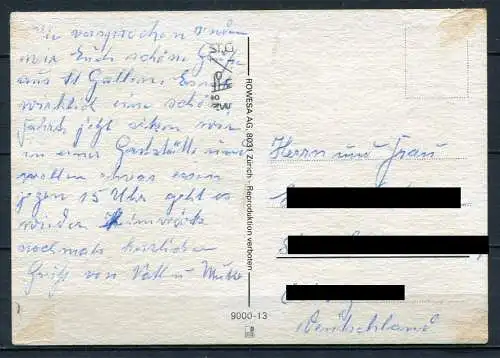 Wie versprochen senden
wir Euch schöne Grüße
aus St Gallen. Es war
wirklich eine schöne
Fahrt jetzt sitzen wir
in einer Gaststätte und
wollen etwas essen
gegen 15 Uhr geht es
wieder heimwärts
nochmals herzlichen
Gruß von Vati u Mutti
ROWESA AG, 8031 Zürich - Reproduktion verboten
9000-13
Herrn und Frau
Deutschland